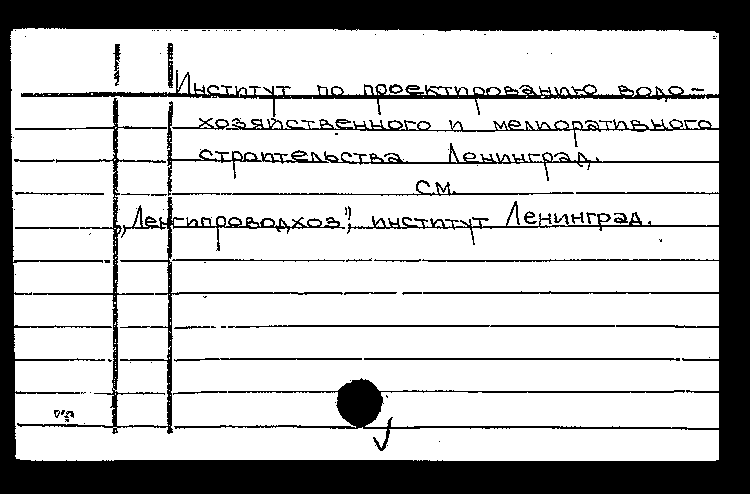 Институт по проектированию водо-
хозяйственного и мелиоративного
строительства. Ленинград.
см.
„Ленгипроводхоз", институт. Ленинград.